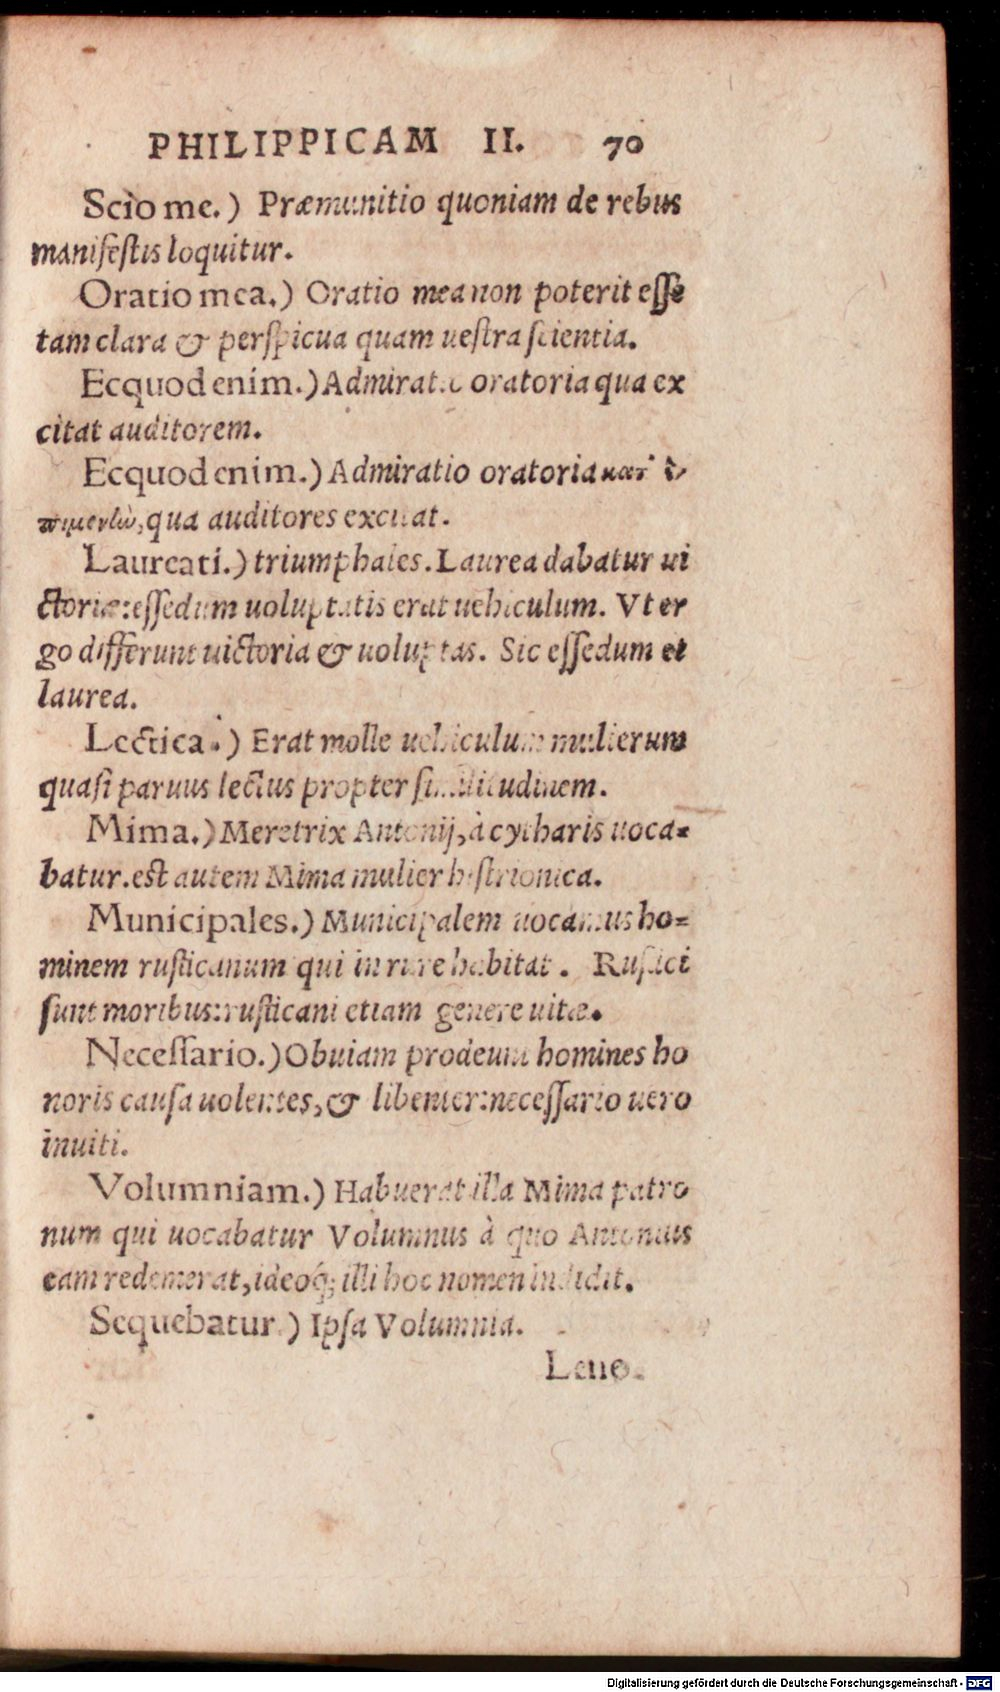 PHILIPPICAM II. 70
Scio me.) Præmunitio quoniam de rebus
manifestis loquitur.
Oratio mea.) Oratio mea non poterit esse
tam clara & perspicua quam uestra scientia.
Ecquod enim.) Admiratio oratoria qua ex
citat auditorem.
Ecquod enim.) Admiratio oratoria
qua auditores excitat.
Laureati.) triumphales. Laurea dabatur ui
ctoriæ: essedum uoluptatis erat uehiculum. Vt er
go differunt uictoria & uoluptas. Sic essedum et
laurea.
Lectica.) Erat molle uehiculum mulierum
quasi paruus lectus propter similitudinem.
Mima.) Meretrix Antonij, à cytharis uoca-
batur. est autem Mima mulier histrionica.
Municipales.) Municipalem uocamus ho-
minem rusticanum qui in rure habitat. Rustici
sunt moribus: rusticani etiam genere uitæ.
Necessario.) Obuiam prodeunt homines ho
noris causa uolentes, & libenter: necessario uero
inuiti.
Volumniam.) Habuerat illa Mima patro
num qui uocabatur Volumnus à quo Antonius
eam redemerat, ideoq; illi hoc nomen indidit.
Sequebatur.) Ipsa Volumnia.
Leno.
Digitalisierung gefördert durch die Deutsche Forschungsgemeinschaft - DFG